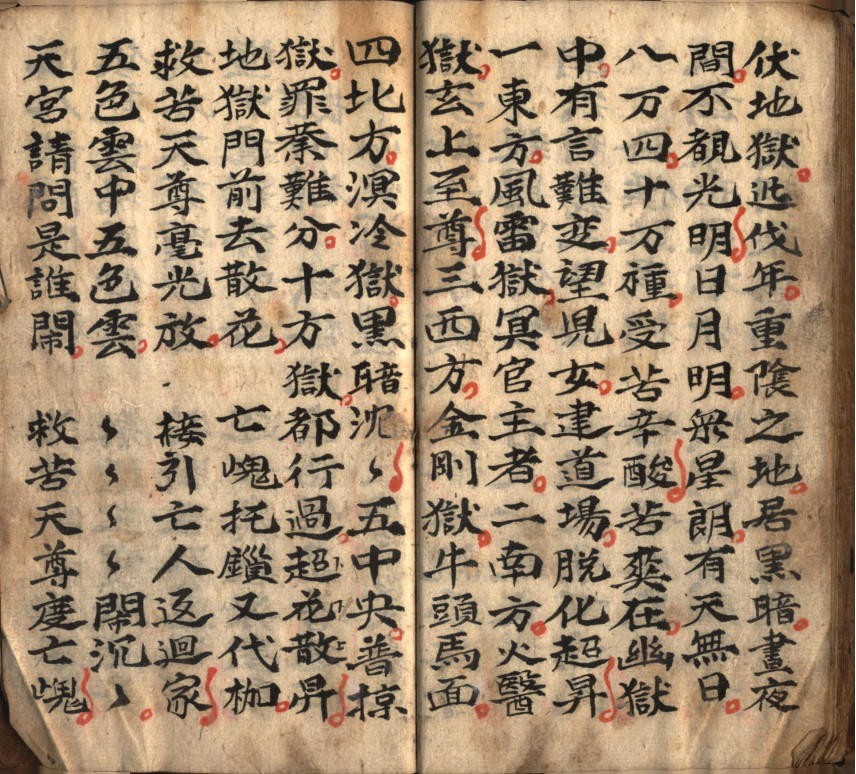 伏地獄迯伐年重陰之地居黑暗晝夜
間不覩光明日月明無星朗有天無日
八万四十万種受苦辛酸苦奕在幽獄
中有言難变望兒女建道場脱化超昇
一東方風雷獄冥官主者二南方火醫
獄玄上至尊三西方金剛獄牛頭馬面
四北方溟冷獄黑暗沈〻五中央普掠
獄罪業難分十方獄都行過超花散昇
地獄門前去散花亡魂托鎖又代枷
救苦天尊毫光放接引亡人返迴家
五色雲中五色雲〻〻〻〻鬧沉〻
天宮請問是誰鬧救苦天尊度亡魂